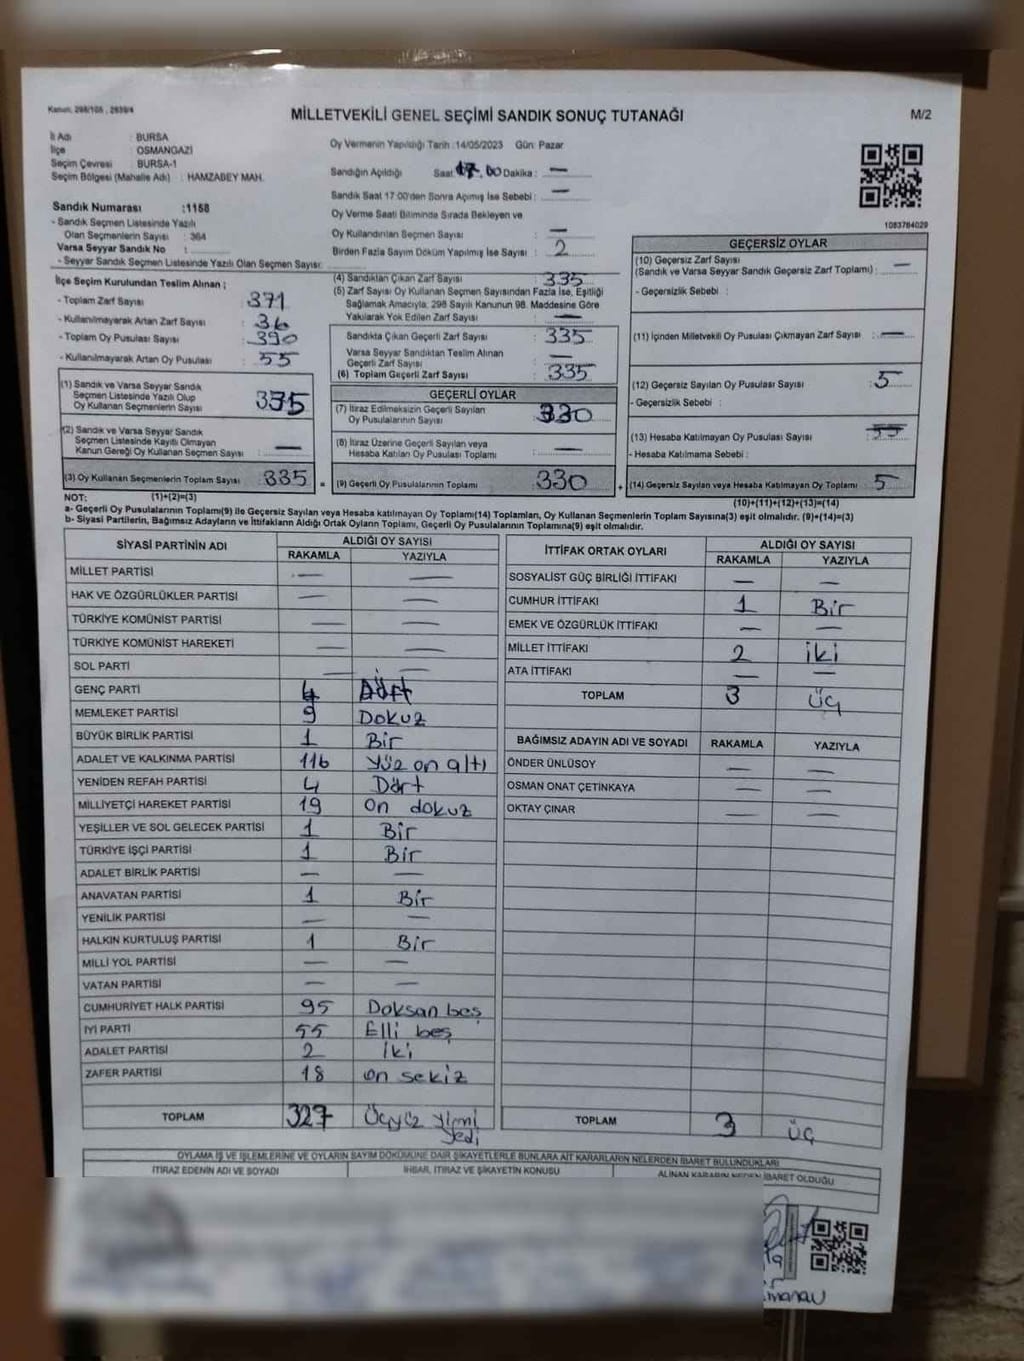 Kanun: 298/105 , 2839/4
MİLLETVEKİLİ GENEL SEÇİMİ SANDIK SONUÇ TUTANAĞI
M/2
İl Adı : BURSA
İlçe OSMANGAZİ
Seçim Çevresi : BURSA-1
Seçim Bölgesi (Mahalle Adı) : HAMZABEY MAH.
Sandık Numarası :1158
- Sandık Seçmen Listesinde Yazılı
Olan Seçmenlerin Sayısı : 364
Varsa Seyyar Sandık No :
- Seyyar Sandık Seçmen Listesinde Yazılı Olan Seçmen Sayısı:
Oy Vermenin Yapıldığı Tarih :14/05/2023 Gün: Pazar
Sandığın Açıldığı Saat 17.00 Dakika : —
Sandık Saat 17:00'den Sonra Açımış İse Sebebi : —
Oy Verme Saati Bitiminde Sırada Bekleyen ve
Oy Kullandırılan Seçmen Sayısı : —
Birden Fazla Sayım Döküm Yapılmış İse Sayısı : 2
1083764029
İlçe Seçim Kurulundan Teslim Alınan ;
- Toplam Zarf Sayısı 371
- Kullanılmayarak Artan Zarf Sayısı : 36
- Toplam Oy Pusulası Sayısı : 390
- Kullanılmayarak Artan Oy Pusulası : 55
(1) Sandık ve Varsa Seyyar Sandık
Seçmen Listesinde Yazılı Olup
Oy Kullanan Seçmenlerin Sayısı 335
(2) Sandık ve Varsa Seyyar Sandık
Seçmen Listesinde Kayıtlı Olmayan
Kanun Gereği Oy Kullanan Seçmen Sayısı : —
(3) Oy Kullanan Seçmenlerin Toplam Sayısı : 335
(4) Sandıktan Çıkan Zarf Sayısı : 335
(5) Zarf Sayısı Oy Kullanan Seçmen Sayısından Fazla İse, Eşitliği
Sağlamak Amacıyla, 298 Sayılı Kanunun 98. Maddesine Göre
Yakılarak Yok Edilen Zarf Sayısı : —
Sandıkta Çıkan Geçerli Zarf Sayısı : 335
Varsa Seyyar Sandıktan Teslim Alınan
Geçerli Zarf Sayısı : —
(6) Toplam Geçerli Zarf Sayısı : 335
GEÇERLİ OYLAR
(7) İtiraz Edilmeksizin Geçerli Sayılan
Oy Pusulalarının Sayısı : 330
(8) İtiraz Üzerine Geçerli Sayılan veya
Hesaba Katılan Oy Pusulası Toplamı : —
= (9) Geçerli Oy Pusulalarının Toplamı : 330
GEÇERSİZ OYLAR
(10) Geçersiz Zarf Sayısı
(Sandık ve Varsa Seyyar Sandık Geçersiz Zarf Toplamı) : —
- Geçersizlik Sebebi :
(11) İçinden Milletvekili Oy Pusulası Çıkmayan Zarf Sayısı : —
(12) Geçersiz Sayılan Oy Pusulası Sayısı : 5
- Geçersizlik Sebebi :
(13) Hesaba Katılmayan Oy Pusulası Sayısı :
- Hesaba Katılmama Sebebi :
+ (14) Geçersiz Sayılan veya Hesaba Katılmayan Oy Toplamı : 5
NOT: (1)+(2)=(3) (10)+(11)+(12)+(13)=(14)
a- Geçerli Oy Pusulalarının Toplamı(9) ile Geçersiz Sayılan veya Hesaba katılmayan Oy Toplamı(14) Toplamları, Oy Kullanan Seçmenlerin Toplam Sayısına(3) eşit olmalıdır. (9)+(14)=(3)
b- Siyasi Partilerin, Bağımsız Adayların ve İttifakların Aldığı Ortak Oyların Toplamı, Geçerli Oy Pusulalarının Toplamına(9) eşit olmalıdır.
SİYASİ PARTİNİN ADI ALDIĞI OY SAYISI
RAKAMLA YAZIYLA
MİLLET PARTİSİ — —
HAK VE ÖZGÜRLÜKLER PARTİSİ — —
TÜRKİYE KOMÜNİST PARTİSİ — —
TÜRKİYE KOMÜNİST HAREKETİ — —
SOL PARTİ — —
GENÇ PARTİ 4 Dört
MEMLEKET PARTİSİ 9 Dokuz
BÜYÜK BİRLİK PARTİSİ 1 Bir
ADALET VE KALKINMA PARTİSİ 116 Yüz on altı
YENİDEN REFAH PARTİSİ 4 Dört
MİLLİYETÇİ HAREKET PARTİSİ 19 On dokuz
YEŞİLLER VE SOL GELECEK PARTİSİ 1 Bir
TÜRKİYE İŞÇİ PARTİSİ 1 Bir
ADALET BİRLİK PARTİSİ — —
ANAVATAN PARTİSİ 1 Bir
YENİLİK PARTİSİ — —
HALKIN KURTULUŞ PARTİSİ 1 Bir
MİLLİ YOL PARTİSİ — —
VATAN PARTİSİ — —
CUMHURİYET HALK PARTİSİ 95 Doksan beş
İYİ PARTİ 55 Elli beş
ADALET PARTİSİ 2 İki
ZAFER PARTİSİ 18 on sekiz
TOPLAM 327 Üçyüz yirmi
yedi
İTTİFAK ORTAK OYLARI ALDIĞI OY SAYISI
RAKAMLA YAZIYLA
SOSYALİST GÜÇ BİRLİĞİ İTTİFAKI — —
CUMHUR İTTİFAKI 1 Bir
EMEK VE ÖZGÜRLÜK İTTİFAKI — —
MİLLET İTTİFAKI 2 iki
ATA İTTİFAKI — —
TOPLAM 3 üç
BAĞIMSIZ ADAYIN ADI VE SOYADI RAKAMLA YAZIYLA
ÖNDER ÜNLÜSOY — —
OSMAN ONAT ÇETİNKAYA — —
OKTAY ÇINAR — —
TOPLAM 3 üç
OYLAMA İŞ VE İŞLEMLERİNE VE OYLARIN SAYIM DÖKÜMÜNE DAİR ŞİKAYETLERLE BUNLARA AİT KARARLARIN NELERDEN İBARET BULUNDUKLARI
İTİRAZ EDENİN ADI VE SOYADI İHBAR, İTİRAZ VE ŞİKAYETİN KONUSU ALINAN KARARIN NEDEN İBARET OLDUĞU